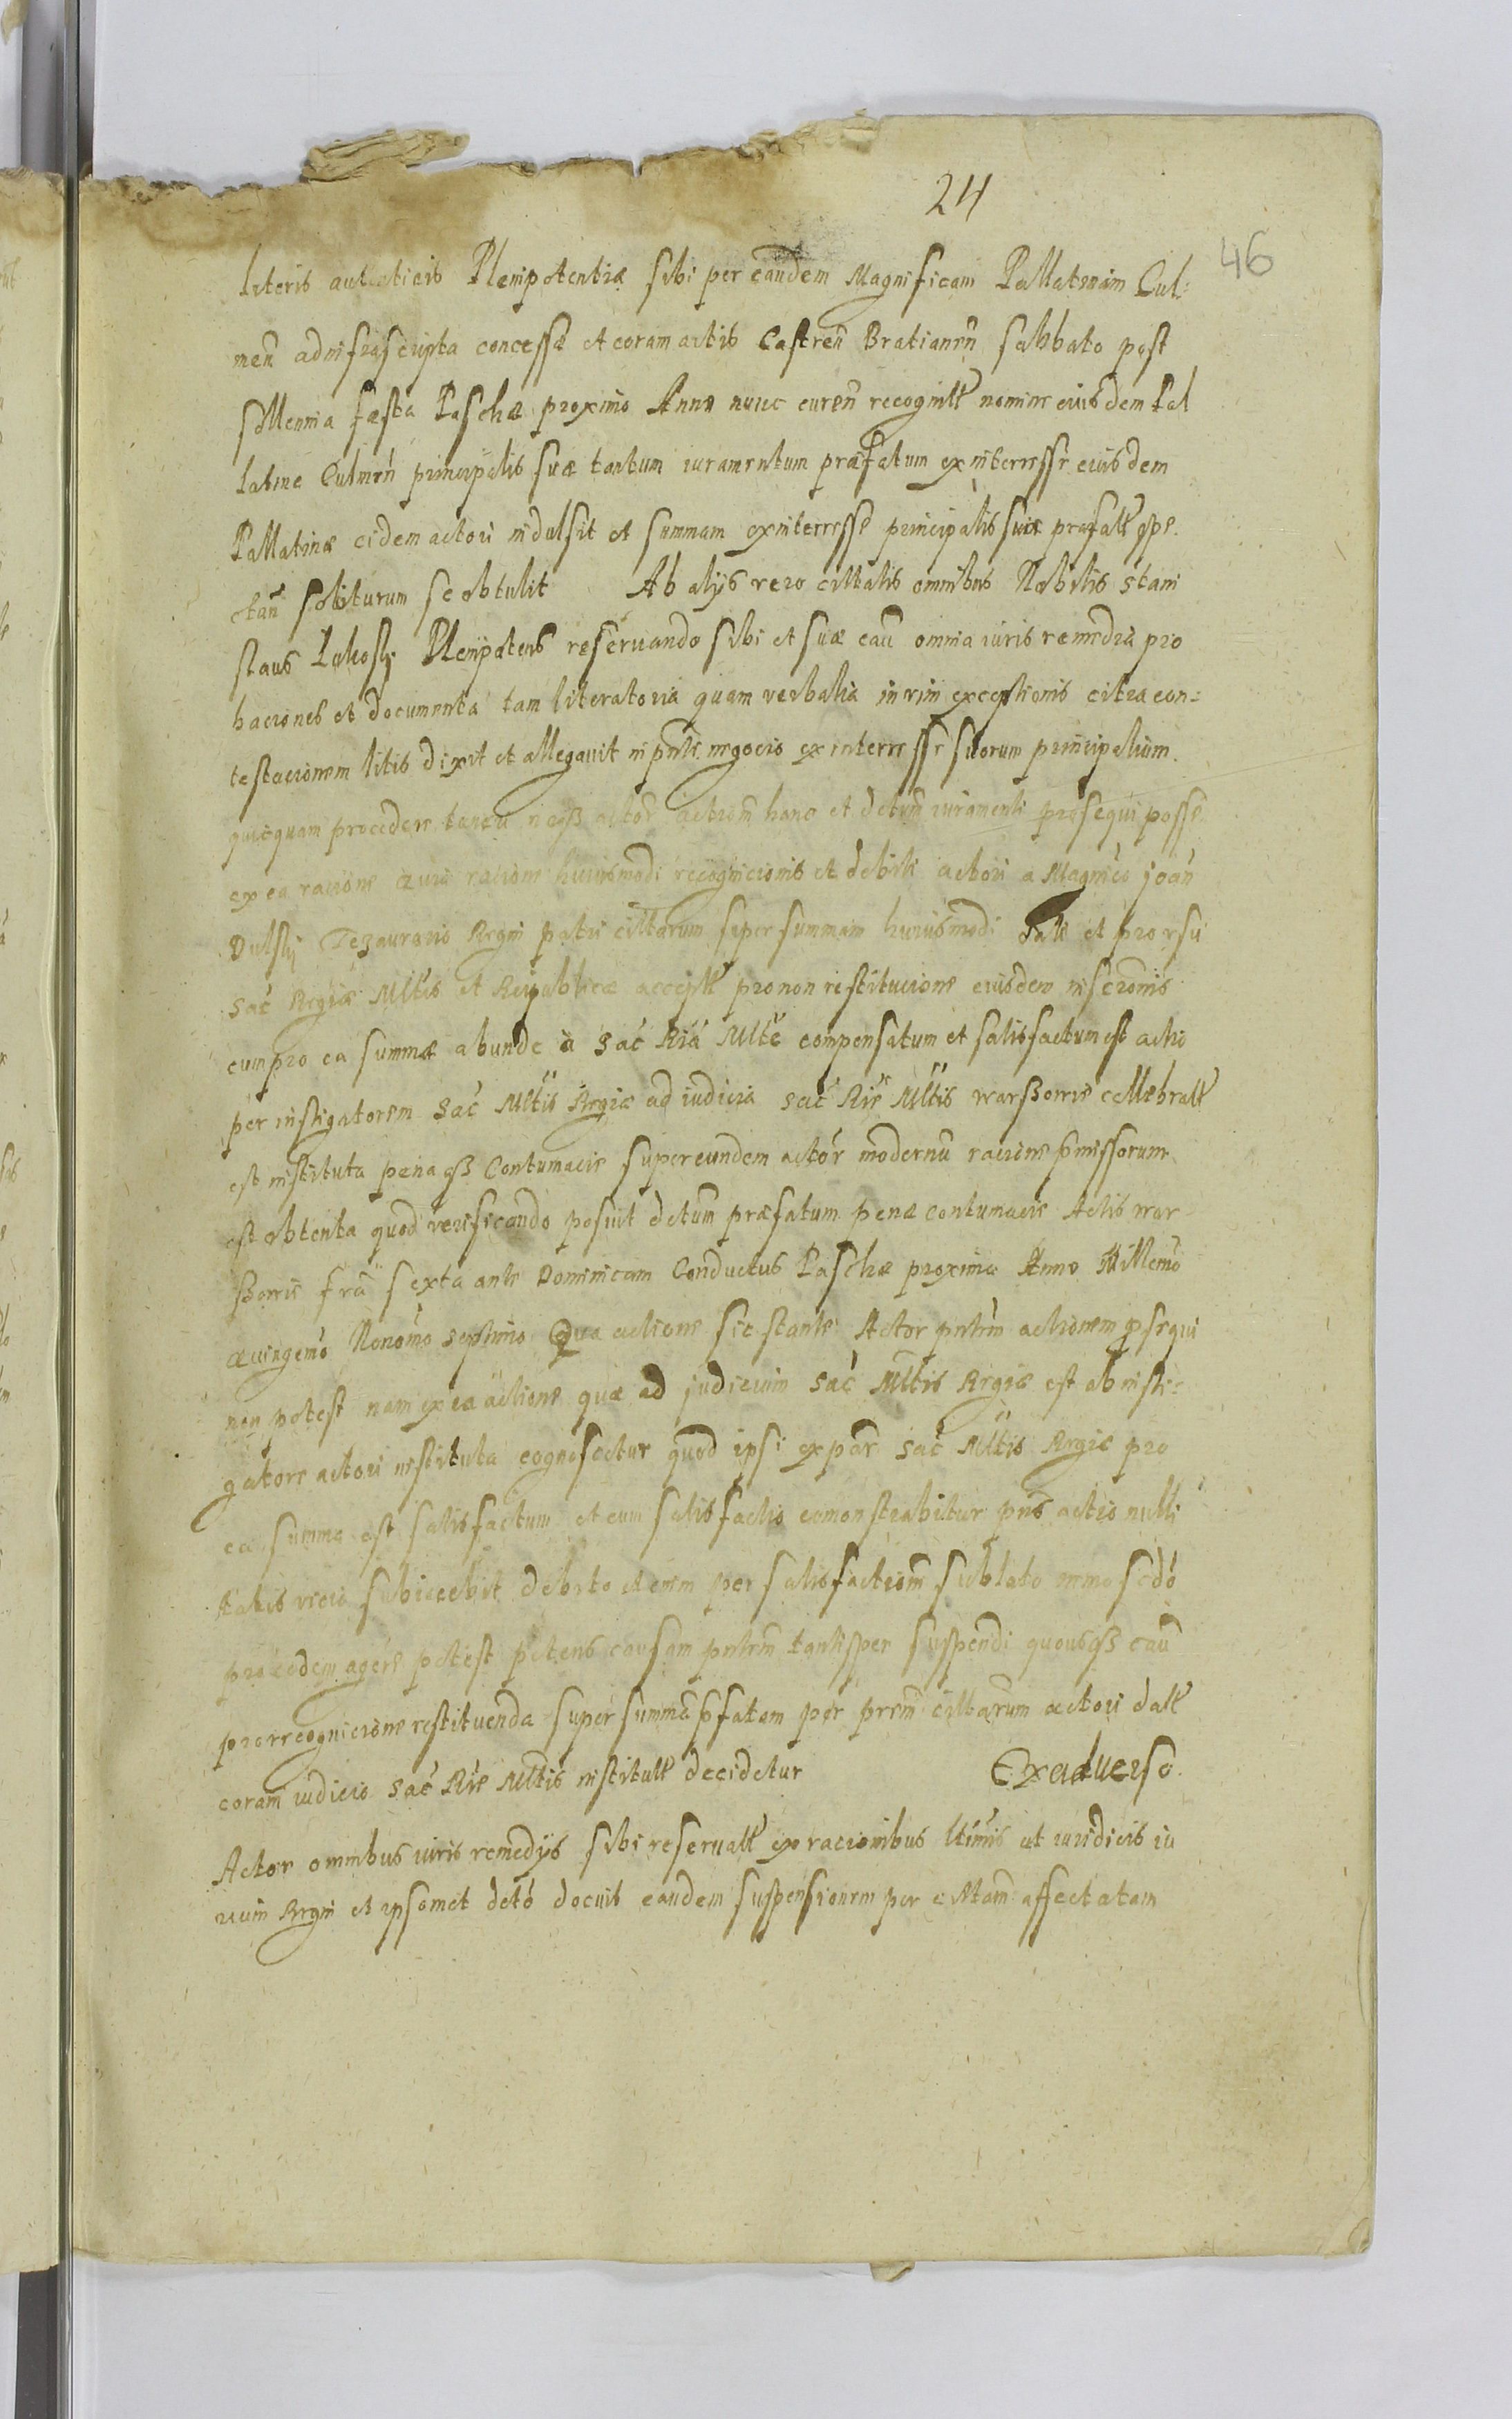 24
46
literis autenticis Plenipotentiæ sibi per eandem Magnificam Pallatinam Cul:
men̄ ad infrascripta concessæ et coram actis Castren̄ Bratianen̄ Sabbato post
sollennia festa Paschæ proximo Anno nunc curen̄ recognitt nomine eiusdem Pal
latinæ Culmen̄ principalis suæ tantum iuramentum præfatum ex interresse eiusdem
Pallatinæ eidem actori indulsit et summam ex interresse principalis suæ præfatt spe
ctan̄ soluturum se obtulit Ab alys vero cittatis omnibus Nobilis Stani
slaus Lykosky Plenipotens reseruando sibi et suæ cau omnia iuris remedia pro
baciones et documenta tam literatoria quam verbalia in vim exceptionis citra con:
testacionem litis dixit et allegauit in pn̄ti negocio ex interresse suorum principalium
quicquam procedere neqȝ actor actionem hanc et iuramenti prosequi posse
ex ea racione quia racione huiusmodi recognicionis et debiti actori a Magnico Joan̄
Dulsky Tezaurario Regni patri cittatorum super summam huiusmodi dati et pro usu
Sac Regiæ Mttis et Reipublicæ accept pro non restitucione eiusdem inscr̄onis
cum pro ea summæ abunde a Sac Ria Mtte compensatum et satisfactum est actio
per instigatorem Sac Mttis Regiæ ad iudicia Sac Rie Mttis Warssowie cellebratt
est instituta pena qȝ Contumacie super eundem actor modernū racione p̄missorum
est obtenta quod verificando posuit detum præfatum penæ contumacie Actis War
ssowie fria sexta ante Dominicam Conductus Paschæ proxima Anno Millemo
quingemo Nonomo septimo Qua actione sic stante Actor pntem actionem psequi
non potest nam ex ea actione quæ ad judicium Sac Mttis Regiæ est ab insti:
gatore actori instituta cognoscetur quod ipsi ex par Sac Mttis Regiæ pro
ea summa est satisfactum et cum satisfactio comonstrabitur pn̄s actio nulli
tatis vicio subiacebit debito etenim per satisfactionem sublato nemo scdo
pro eodem agere potest petens causam pntem tantisper suspendi quousqȝ cau
pro recognicione restituenda super summa p̄fatam per prem cittatorum actori datt
coram iudicio Sac Rie Mttis institutt decidetur Ex aduerso
Actor omnibus iuris remedys sibi reseruatt ex racionibus ltimis ut iuridicis iu
rium Regni et ipsomet deto docuit eandem suspensionem per cittatam affectatam